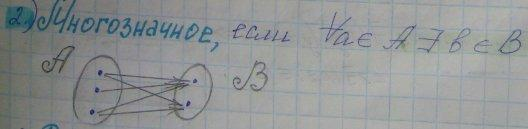 2.) Многозначное, если ∀a ∈ A ∃ b ∈ B
A B